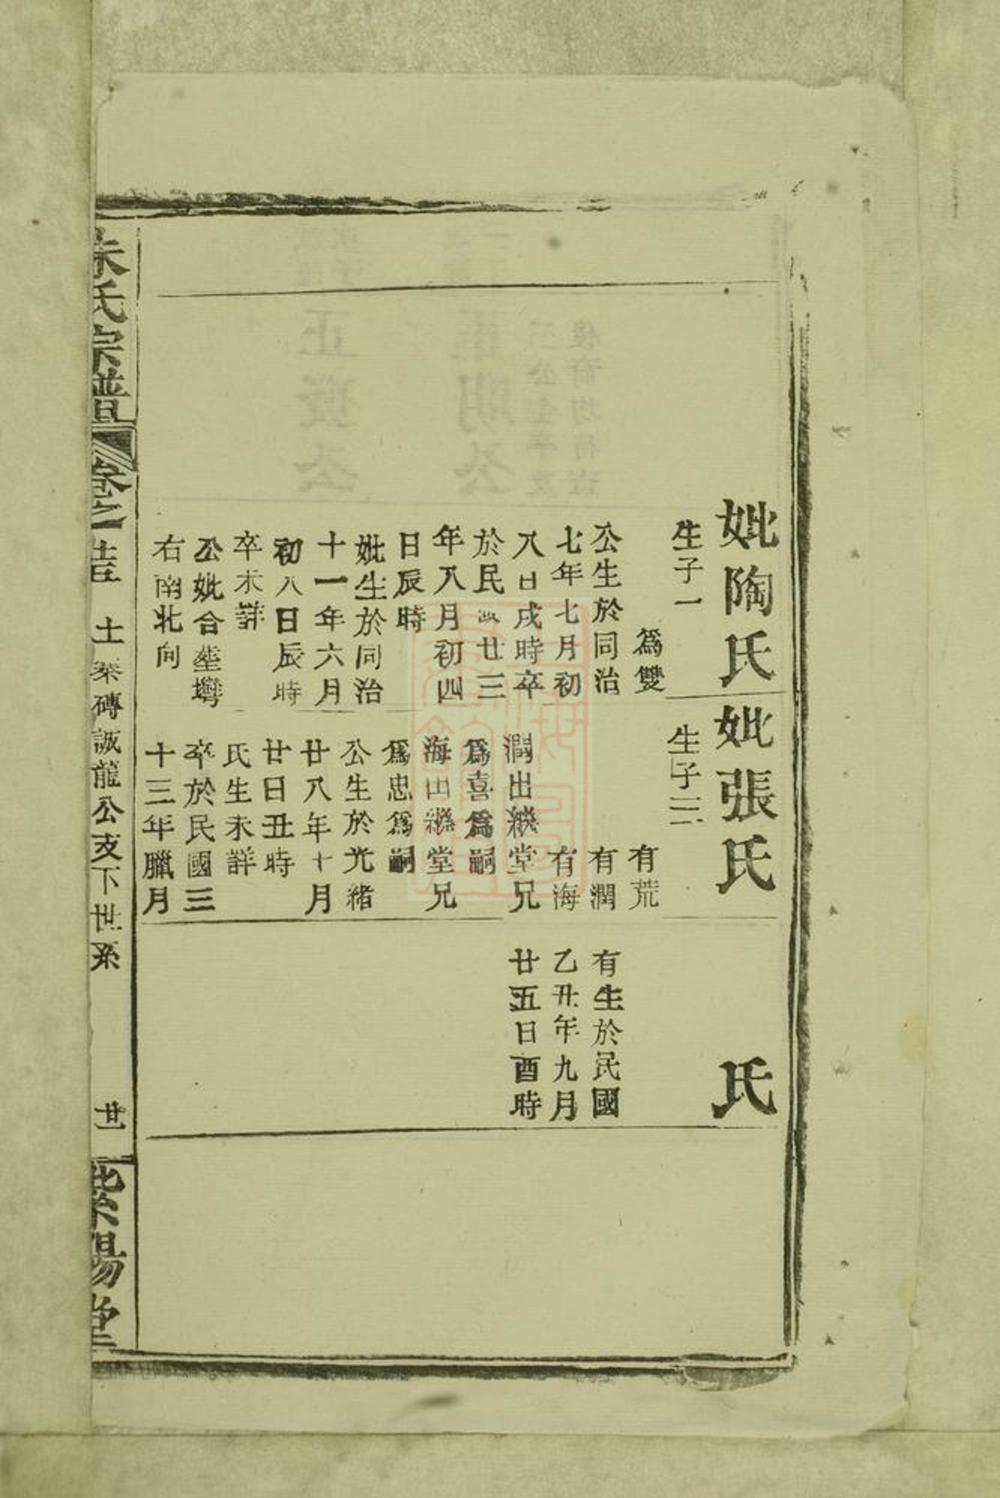 妣陶氏
生子一
爲雙
公生於同治
七年七月初
八日戌時卒
於民國廿三
年八月初四
日辰時
妣生於同治
十一年六月
初八日辰時
卒未詳
公妣合塋塆
右南北向
妣張氏
生子三
有荒
有潤
有海
潤出繼堂兄
爲喜爲嗣
海出繼堂兄
爲忠爲嗣
公生於光緒
廿八年十月
廿日丑時
氏生未詳
卒於民國三
十三年臘月
氏
有生於民國
乙丑年九月
廿五日酉時
朱氏宗譜
卷之
土 磚誠龍公支下世系
紫陽堂